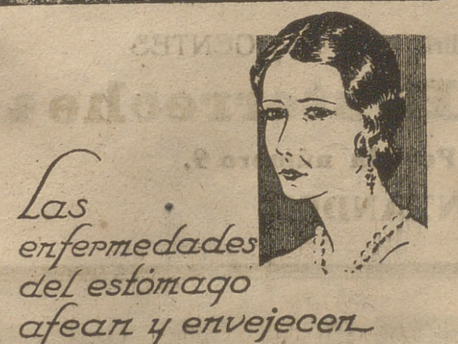 Las
enfermedades
del estómago
afean y envejecen